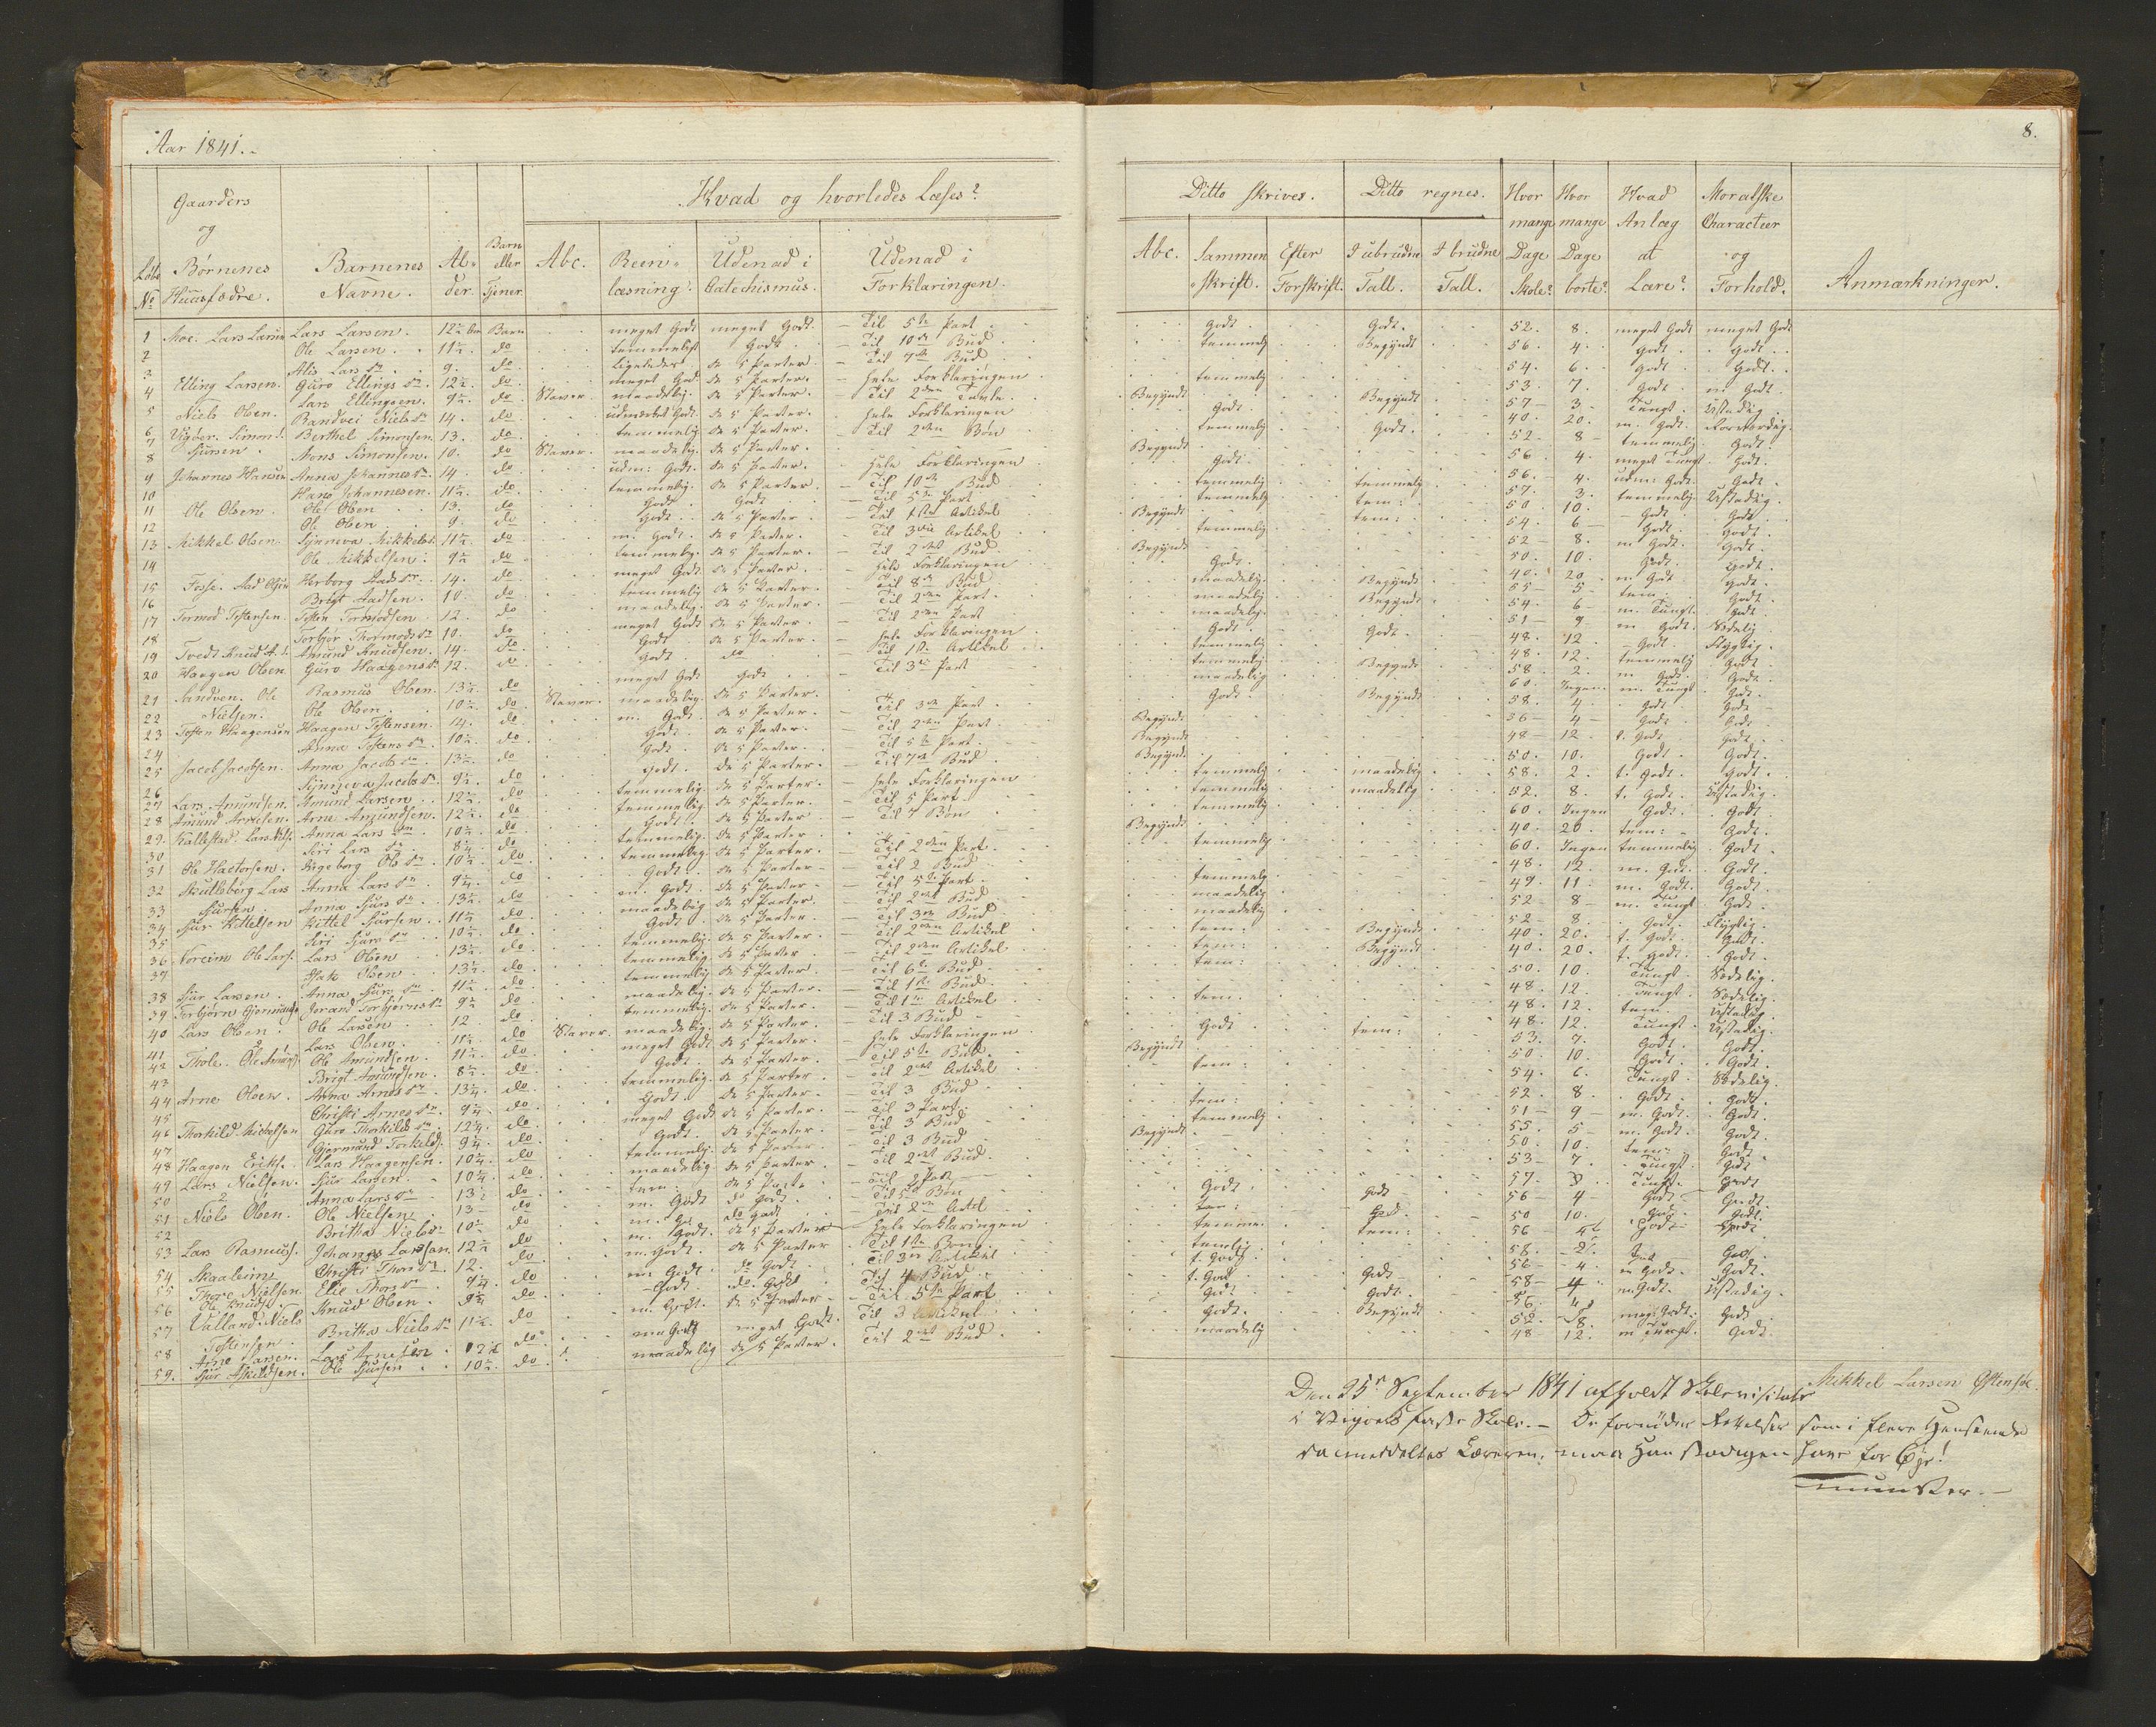 Aar 1841.
8.
Gaarders og Børnenes Huusfædre.
Løbe No
Barnenes Navne.
Alder.
Barn eller Tjener
Hvad og hvorledes Læses?
Abc.
Reenlæsning.
Udenad i Catechismus.
Udenad i Forklaringen.
Ditto skrives.
Abc.
Sammenskrift.
Efter Forskrift.
Ditto regnes.
I ubrudne Tall.
I brudne Tall.
Hvor mange Dage Skole?
Hvor mange Dage borte?
Hvad Anlæg at Lære?
Moralske Characteer og Forhold.
Anmærkninger.
1 Moe. Lars Larsen Lars Larsen. 12½ Barn meget Godt meget Godt. Til 5te Part Godt. Godt. 52. 8. meget Godt meget Godt
2 Ole Larsen. 11½. do temmeligt Godt. Til 10de Bud temmelig Begyndt 56. 4. Godt. Godt.
3 Alis Lars Dr. 9. do. Ligeledes de 5 Parter. Til 7de Bud 54. 6. Godt. Godt.
4 Elling Larsen. Guro Ellings Dr. 12½. do. meget God. de 5 Parter. hele Forklaringen temmelig 53. 7. Godt. m Godt.
5 Lars Ellingsen. 9½. do Staver. maadelig. de 5 Parter. Til 2den Tavle. Begyndt 57 3 Tungt. Ustadig.
6 Niels Olsen. Randvei Niels Dr 14. do udmærket Godt. de 5 Parter. hele Forklaringen Godt. Begyndt 40. 20. m. Godt.
7 Vigøer. Simon Sjursen Berthel Simonsen. 13. do temmelig de 5 Parter. Til 2den Bøn temmelig Godt. 52. 8 temmelig. Godt.
8 Mons Simonsen. 10. do Staver. maadelig. de 5 Parter. Begyndt 56. 4. meget Tungt. Godt.
9 Johannes Hansen Anna Johannes Dr. 14. do udm: Godt. de 5 Parter. hele Forklaringen Godt. 56. 4. udm: Godt. Godt.
10 Hans Johannesen. 11½. do. temmelig. de 5 Parter. Til 10de Bud temmelig temmelig 57. 3. temmelig. Ustadig.
11 Ole Olsen. Ole Olsen 13. do Godt. Godt Til 5te Part temmelig tem: 50. 10. Godt. Godt.
12 Ole Olsen 9. do Godt. de 5 Parter. Til 1ste Artikel Begyndt tem: 54. 6 Godt. Godt.
13 Mikkel Olsen. Synneva Mikkels Dr 11½. do m. Godt. de 5 Parter. Til 3die Artikel temmelig 52 8. m Godt. Godt.
14 Ole Mikkelsen. 9½ do temmelig. de 5 Parter. Til 2det Bud Begyndt 50. 10. Godt. Godt.
15 Fosse. Aad Olsen Herborg Aads Dr. 14. do meget Godt. de 5 Parter. hele Forklaringen Godt. 40. 20. m Godt Godt.
16 Brigt Aadsen. 10. do temmelig de 5 Parter. Til 8de Bud maadelig. Begyndt 55 5 tem: Godt.
17 Tormod Tostensen. Tosten Tormodsen 12. do maadelig. de 5 Parter. Til 2den Part. maadelig Begyndt 54. 6 m. Tungt. Godt.
18 Torbjør Thormods Dr 10. do meget Godt de 5 Parter. Til 2den Part maadelig. 51 9 m Godt. Sædelig
19 Tvedt Knud A. S. Amund Knudsen. 14. do. Godt de 5 Parter. hele Forklaringen Godt. Godt. 48. 12. Godt. Flygtig.
20 Haagen Olsen Guro Haagens Dr 12. do Godt do Til 1ste Artikel temmelig 48. 12. temmelig Godt.
21 Sandven. Ole Nielsen. Rasmus Olsen. 13½. do meget God. Godt Til 3die Part temmelig Begyndt 58. 2. m Godt. Godt.
22 Ole Olsen. 10½. do Staver. maadelig. de 5 Parter. maadelig 60. Ingen. m. Tungt. Godt.
23 Tosten Haagensen Haagen Tostensen. 14. do. m. Godt. de 5 Parter. Til 3die Part Godt. Begyndt 58. 4. Godt. Godt
24 Anna Tostens Dr. 10½. do Godt. de 5 Parter. Til 2den Part. Begyndt 36 4 Godt. Godt.
25 Jacob Jacobsen. Anna Jacobs Dr. 13½. do Godt. de 5 Parter. Til 5te Part. Begyndt 48 12 Godt. Godt.
26 Synneva Jacobs Dr. 9½. do Godt. de 5 Parter. Til 7de Bud Begyndt 50. 10. Godt. Godt.
27 Lars Amundsen. Amund Larsen. 12½. do temmelig. de 5 Parter. hele Forklaringen temmelig maadelig 58. 2. t. Godt. Godt.
28 Amund Arnesen. Arne Amundsen. 12½. do temmelig de 5 Parter. Til 5 Part temmelig maadelig 52. 8. t. Godt. Ustadig.
29. Kallestad. Lars Nils. Anna Lars Dr. 10½. do. Godt. de 5 Parter. Til 7 Bøn temmelig 60. Ingen Godt. Godt.
30 Siri Lars Dr. 8¼. do temmelig. de 5 Parter. Begyndt 40. 20. tem: Godt.
31 Ole Hactorsen. Ingeborg Ols Dr. 10½. do temmelig. de 5 Parter. Til 2den Part. temmelig 60. Ingen temmelig Godt.
32 Skutleberg Lars Sjursen. Anna Lars Dr. 9¼. do Godt. de 5 Parter. Til 2 Bud 48. 12. m. God. Godt.
33 Anna Sjurs Dr. 13½. do m. Godt. de 5 Parter. Til 5te Part. temmelig 49. 11. m. Godt. Godt.
34 Sjur Kittelsen Kittel Sjursen. 11½ do maadelig de 5 Parter. Til 2det Bud maadelig 52 8 m. Tungt Godt.
35 Siri Sjurs Dr 10½. do Godt. de 5 Parter. Til 3die Bud maadelig 52 8. Godt. Flygtig.
36 Noreim Ole Lars. Lars Olsen 13½. do temmelig. de 5 Parter. Til 2den Artikel tem: Begyndt 40. 20. t. Godt. Godt.
37 Hak Olsen 13½. do temmelig. de 5 Parter. Til 2den Artikel tem: Begyndt 40. 20 t. Godt. Godt.
38 Sjur Larsen. Anna Sjurs Dr 11½. do temmelig de 5 Parter. Til 6te Bud tem: 50. 10. Tungt. Sædelig.
39 Torbjørn Gjermunds. Jorand Torbjørns Dr 9½ do maadelig. de 5 Parter. Til 1ste Bud. 48. 12. Tungt. Sædelig.
40 Lars Olsen Ole Larsen 12. do temmelig. de 5 Parter. Til 1ste Artikel tem. 48. 12 tem Ustadig.
41 Lars Olsen. 11½. do Staver. maadelig. de 5 Parter. Til 3 Bud 48. 12. Tungt. Ustadig.
42 Thole. Ole Amunds. Ole Amundsen. 11½. do. meget Godt de 5 Parter. hele Forklaringen Godt tem: 53. 7. Godt. Godt.
43 Brigt Amundsen. 8½. do. Godt de 5 Parter. Til 5te Bud. Begyndt 50. 10. Godt. Godt.
44 Arne Olsen. Anna Arnes Dr. 13¼. do temmelig. de 5 Parter. Til 2det Artikel tem: 54. 6. Tungt. Sædelig.
45 Christi Arnes Dr. 9¼. do Godt. de 5 Parter. Til 3 Bud 52. 8. Godt. Godt.
46 Thorkild Michelsen Guro Thorkilds Dr. 12¼. do. meget Godt de 5 Parter. Til 3 Part. tem: 51 9 m. Godt. Godt.
47 Gjermund Torkilds. 9¼. do. Godt. de 5 Parter. Til 3 Bud temmelig 55. 5 m. Godt. Godt.
48 Haagen Eriks. Lars Haagensen. 10¼. do temmelig. de 5 Parter. Til 3 Bud Begyndt 50. 10. tem: Godt
49 Lars Nielsen. Sjur Larsen. 10¼. do maadelig. de 5 Parter. Til 2det Bud. 53 7. Tungt. Godt
50 Anna Lars Dr 13½ do tem: de 5 Parter Til 5 Part 57. 3 Tungt. Godt
51 Niels Olsen. Ole Nielsen 13 do m. Godt do Godt. Til 5te Bøn Godt. Godt 56 4 Godt Godt.
52 Britha Niels Dr 10½ do m. G. do Godt 50 10. God. Godt.
53 Lars Rasmus. Johannes Larsen. 12½ do m. Godt. de 5 Parter hele Forklaringen temme. tem: 56 Godt Godt
54 Skaaleim Thore Nielsen Christi Thors Dr 12. do m. Godt. de 5 Parter Til 1ste Bøn temlig 58. 2. God Godt.
55 Elie Thors Dr 9¼. do m. Godt do Godt. Til 3die Artikel t. Godt 56 4. m Godt. Godt.
56 Ole Knuds. Knud Olsen. 9¼ do Godt do. Godt Til 4 Bud t. God Godt 58 4 m. Godt. Ustadig.
57 Valland. Niels Tostensen. Britha Niels Dr 11½. do m. Godt. de 5 Parter Til 5te Part Godt Godt. 56. 4 meg. Godt. Godt
58 Arne Larsen. Lars Arnesen 12½ do m Godt meget Godt. Til 3 Artikel Godt. Begyndt 52. 8. m Tungt. Godt
59. Sjur Askildsen. Ole Sjursen 10½. do. maadelig de 5 Parter. Til 2det Bud. maadelig 48 12.
Mikkel Larsen Østensø.
Den 25de September 1841 afholdt Skolevisitats
i Vigøers faste Skole. De fornødne Rettelser som i flere Henseende
da meddeltes Læreren, maa Han stadigen have for Øje!
Munster.